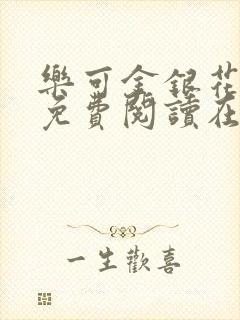 樂可金銀花
免費閱讀在
一生歡喜